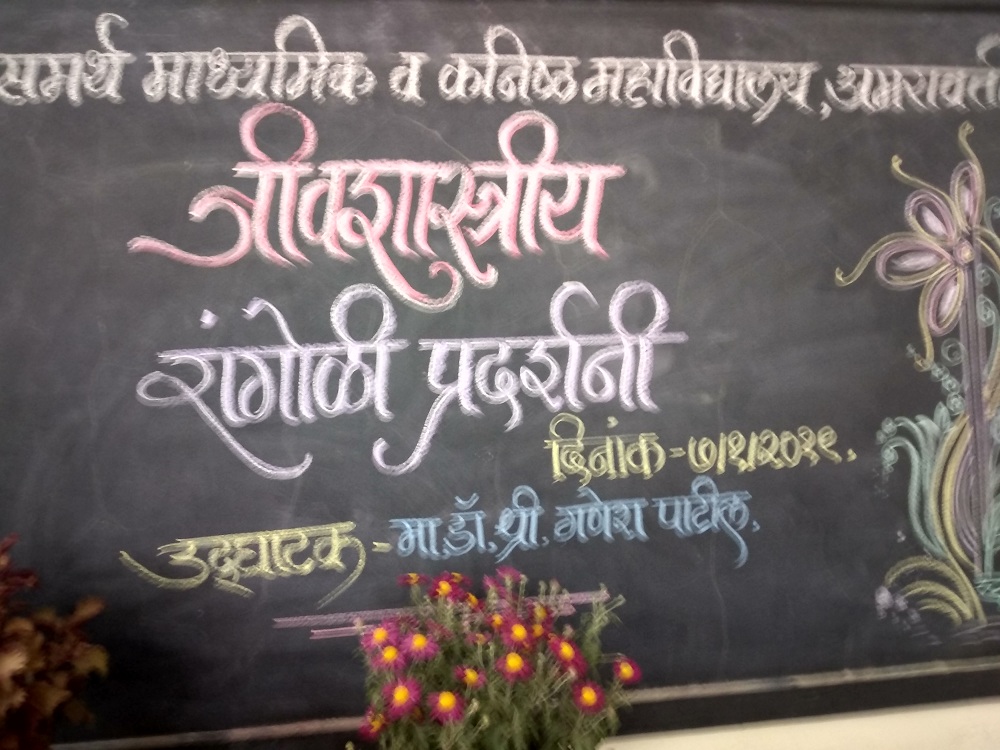 समर्थ माध्यमिक व कनिष्ठ महाविद्यालय, अमरावती
जीवशास्त्रीय
रांगोळी प्रदर्शनी
दिनांक - ७/१/२०१९.
उद्घाटक - मा. डॉ. श्री. गणेश पाटील.